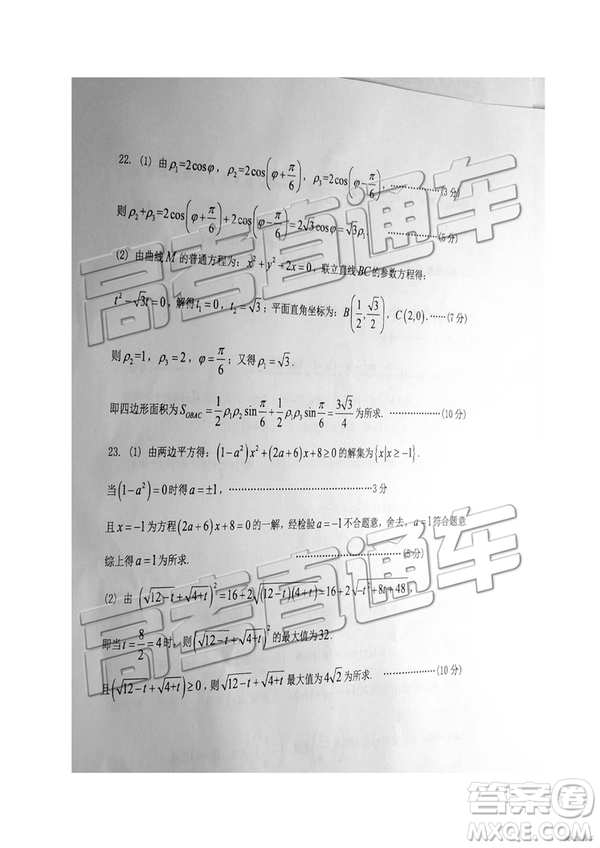 22. (1) 由ρ₁=2cosφ，ρ₂=2cos(φ+π/6)，ρ₃=2cos(φ-π/6)，………………(3分)
则ρ₂+ρ₃=2cos(φ+π/6)+2cos(φ-π/6)=2√3cosφ=√3ρ₁. ………………(5分)
(2) 由曲线M的普通方程为：x²+y²-2x=0，联立直线BC的参数方程得：
t²-√3t=0，解得t₁=0，t₂=√3；平面直角坐标为：B(1/2,√3/2)，C(2,0).……(7分)
则ρ₂=1，ρ₃=2，φ=π/6；又得ρ₁=√3.
即四边形面积为S_OBAC=1/2ρ₁ρ₂sinπ/6+1/2ρ₁ρ₃sinπ/6=3√3/4为所求. ………………(10分)
23. (1) 由两边平方得：(1-a²)x²+(2a+6)x+8≥0的解集为{x|x≥-1}.
当(1-a²)=0时得a=±1，………………………………3分
且x=-1为方程(2a+6)x+8=0的一解，经检验a=-1不合题意，舍去，a=1符合题意
综上得a=1为所求. ………………………………(5分)
(2) 由(√12-t+√4+t)²=16+2√(12-t)(4+t)=16+2√-t²+8t+48，
即当t=8/2=4时，则(√12-t+√4+t)²的最大值为32.
且(√12-t+√4+t)≥0，则√12-t+√4+t最大值为4√2为所求. ………………(10分)
高考直通车
高考直通车
答案圈
MXQE.COM